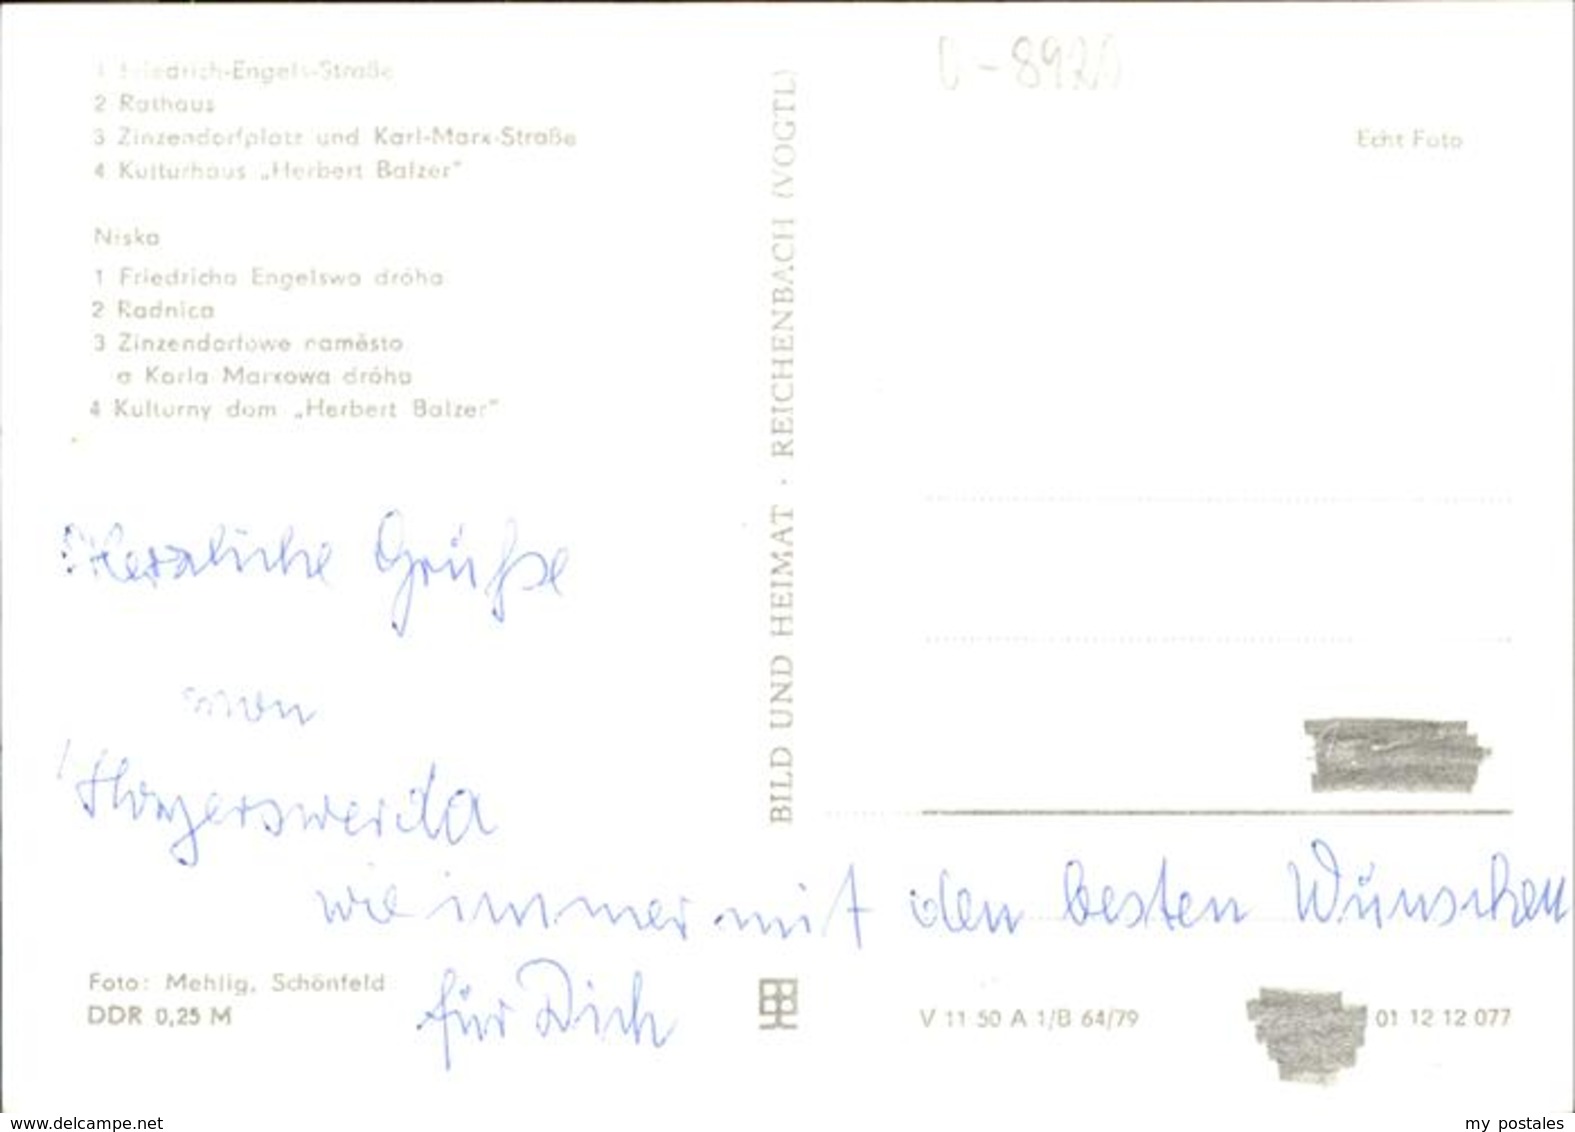 1 Friedrich-Engels-Straße
2 Rathaus
3 Zinzendorfplatz und Karl-Marx-Straße
4 Kulturhaus „Herbert Balzer"
Niska
1 Friedricha Engelswa dróha
2 Radnica
3 Zinzendorfowe naměsto
a Karla Marxowa dróha
4 Kulturny dom „Herbert Balzer"
Herzliche Grüße
von
Hoyerswerda
wie immer mit den besten Wünschen
für Dich
Foto: Mehlig, Schönfeld
DDR 0,25 M
BILD UND HEIMAT · REICHENBACH (VOGTL)
Echt Foto
V 11 50 A 1/B 64/79
01 12 12 077
www.delcampe.net
my postales